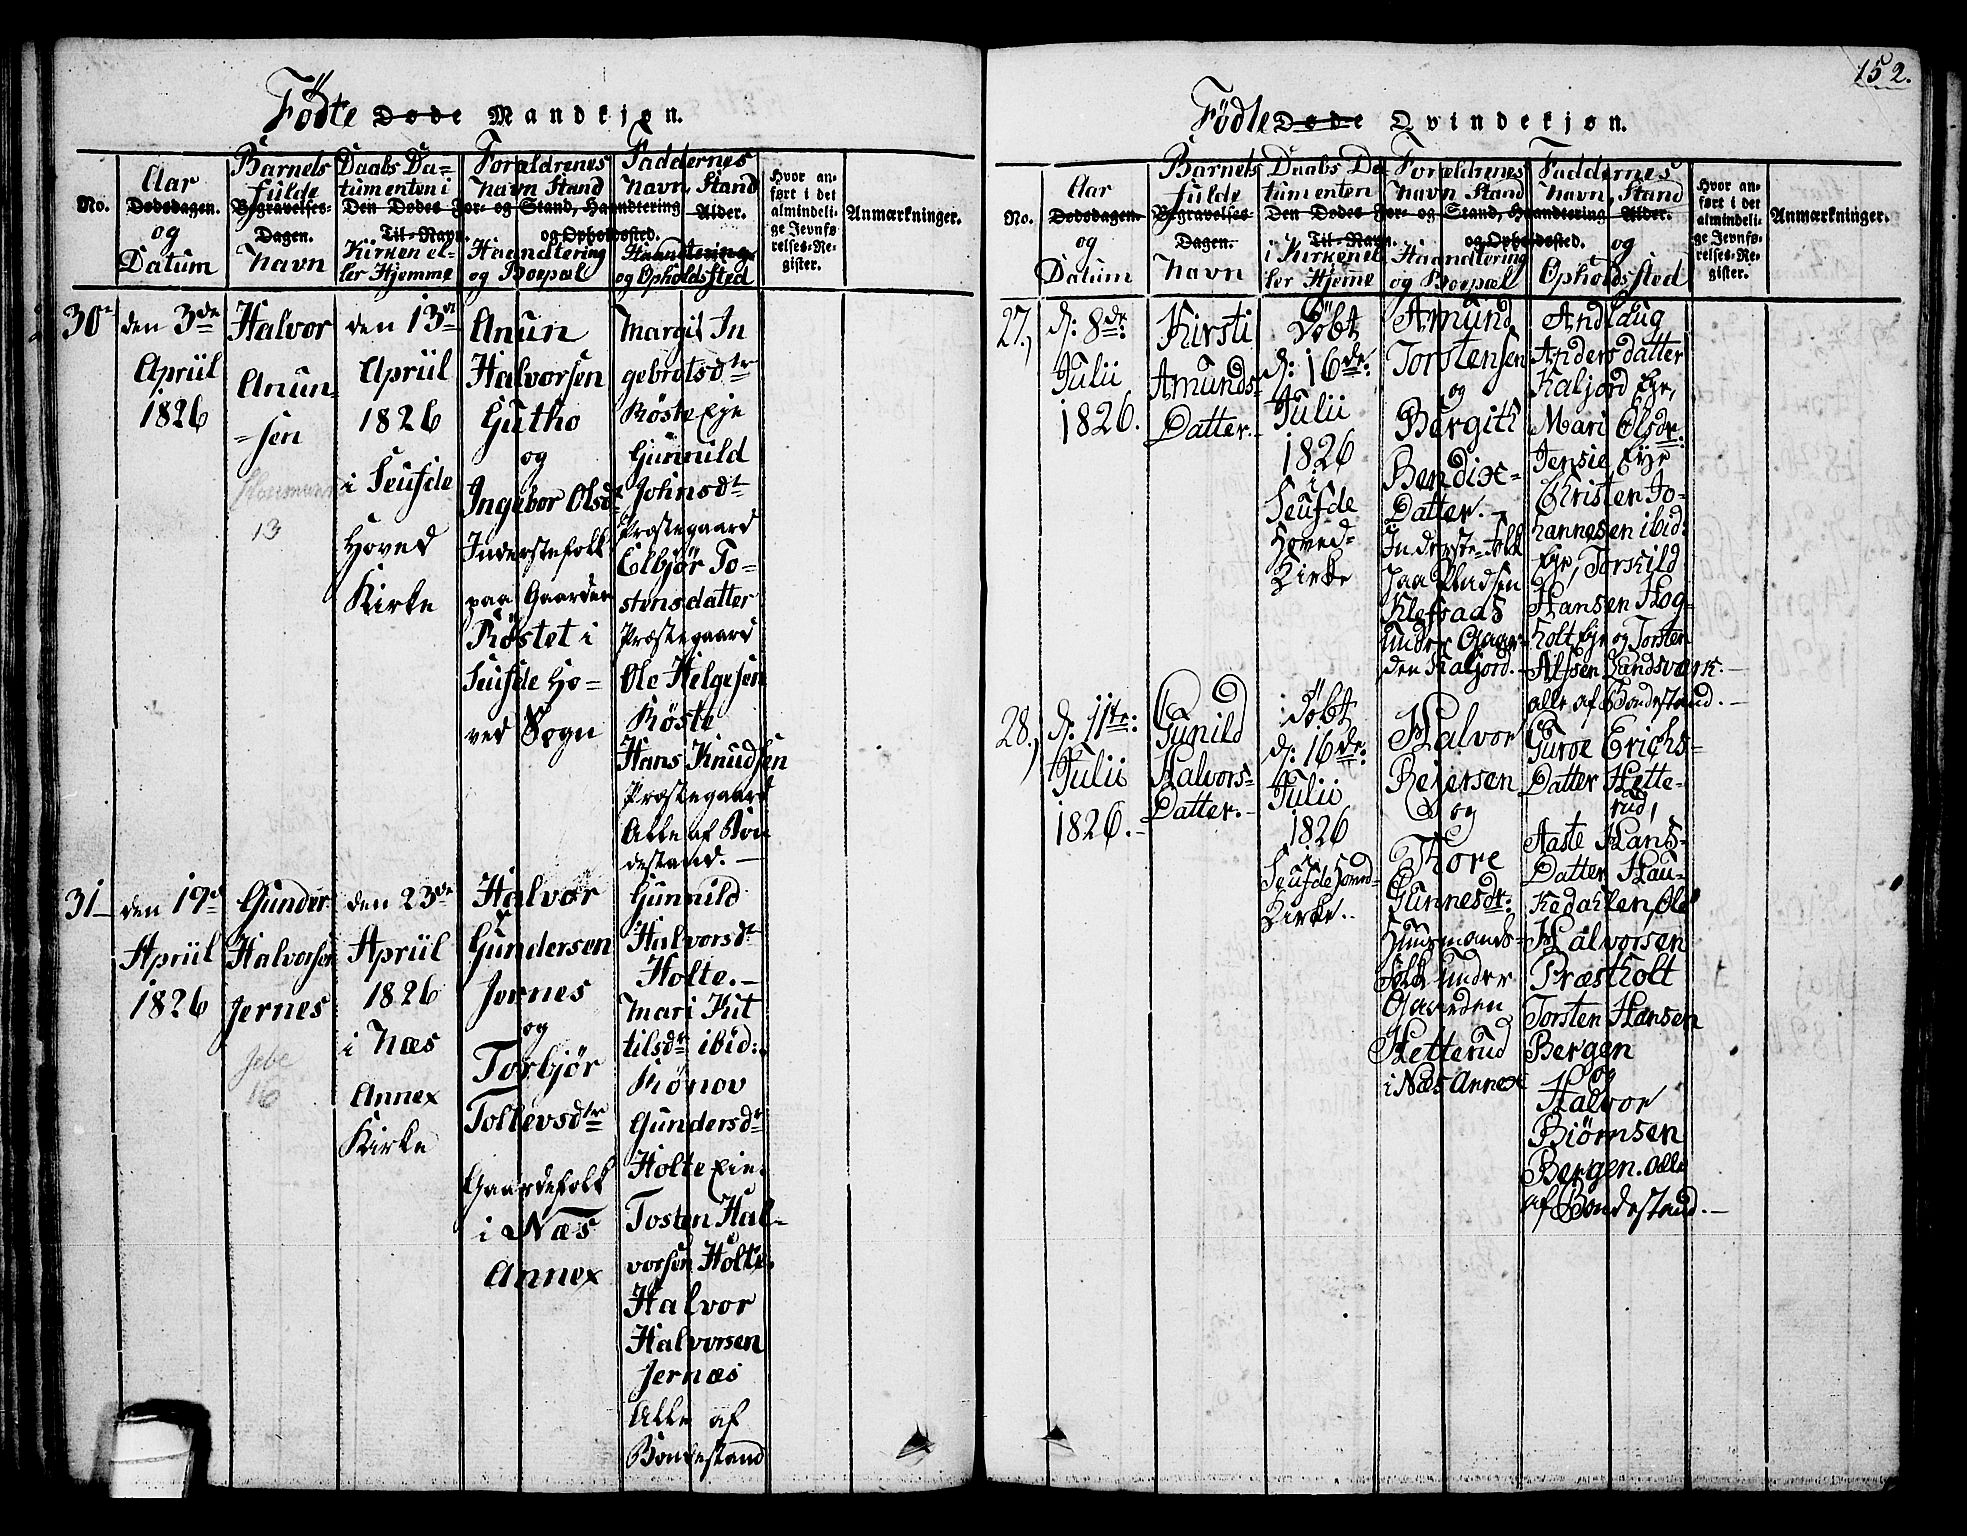 152.
Födte Døde Mandkjøn.
No.
Aar
Dødsdagen.
og
Datum
Barnets
fulde
Begravelses-
Dagen.
Navn
Daabs Da-
tumenten i
Den Dødes For- og
Til-Navn.
Kirken el-
ler Hjemme
Forældrenes
Navn Stand
Stand, Haandtering
og Opholdssted.
Haandtering
og Boepæl
Faddernes
Navn, Stand
Alder.
Haandtering
og Opholds Sted
Hvor an-
ført i det
almindeli-
ge Jevnfø-
relses-Re-
gister.
Anmærkninger.
30
den 3de
April
1826
Halvor
Anun-
-sen
13
den 13de
April
1826
i Seufde
Hoved
Kirke
Anun
Halvorsen
Gutho
og
Ingebor Olsdr
Inderstefolk
paa Gaarden
Röstet i
Seufde Ho-
ved Sogn
Margit In
gebrotsdtr
Röste Eje
Gunnild
Johnsdtr
Præstegaard
Elbjør To-
stensdatter
Præstegaard
Ole Helgesen
Röste
Hans Knudsen
Præstegaard
Alle af Bon
destand.
31
den 19de
April
1826
Gunder
Halvorsen
Jernes
16
den 23de
April
1826
i Næs
Annex
Kirke
Halvor
Gundersen
Jernes
og
Torbjör
Tollevsdtr
Gaardefolk
i Næs
Annex
Gunnild
Halvorsdtr
Holte.-
Mari Kit
tilsdr ibid:
Rönov
Gundersdtr
Holte Eie.
Tosten Hal-
vorsen Holte.
Halvor
Halvorsen
Jernæs
Alle af
Bondestand
Födte Døde Qvindekjøn.
No.
Aar
Dødsdagen.
og
Datum
Barnets
fulde
Begravelses
Dagen.
Navn
Daabs Da-
tumenten
Den Dødes For-
Til-Navn.
i Kirken el
ler Hjeme
Forældrenes
Navn Stand
og Stand, Haandtering
og Opholdssted.
Haandtering
og Boepæl
Faddernes
Navn, Stand
Alder.
og
Opholds Sted
Hvor an-
ført i det
almindeli-
ge Jevnfø-
relses-Re-
gister.
Anmærkninger.
27,
d: 8de:
Julii
1826.
Kirsti
Amunds-
Datter.-
Döbt
d: 16de:
Julii
1826
i
Seufde
Hoved-
Kirke
Amund
Torstensen
og
Bergith
Bendix-
Datter.-
Inderste-Folk
paa Pladsen
under Gaar-
den Kaljord.-
Andlaug
Andersdatter
Kaljord Eje,
Mari Olsdr:
Jensie Eje
Christen Jo-
hannesen ibid:
Eje, Torkild
Hansen Hog-
holt Eje og Torsten
Alfsen Landsværk.-
alle af Bondestand.-
28,
d: 11te:
Julii
1826.-
Gunild
Halvors-
Datter.-
Döbt
d: 16de:
Julii
1826
i
Seufde Hoved-
Kirke.
Halvor
Rejersen
og
Thore
Gunnesdr:
Huusmands-
Folk under
Gaarden
Hetterud
i Næs Annex
Guroe Erichs-
Datter Hette-
rud,
Aaste Hans-
Datter Hau-
kedahlen, Ole
Halvorsen
Præstholt
Torsten Hansen
Bergen
og
Halvor
Biørnsen
Bergen. alle
af Bondestand.-